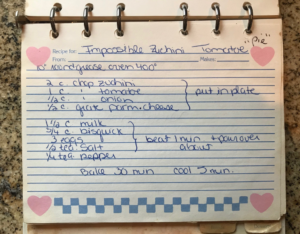 "Pie"
Recipe for: Impossible Zuchini Tomatoe
From: Makes:
10" round grease, oven 400°
2 c. chop zuchini
1 c. " tomatoe put in plate
1/2 c. " onion
1/2 c. grate parm. cheese
1 1/2 c milk
3/4 c. bisquick
3 eggs beat 1 min. + pour over
1/2 tea. salt about
1/4 tea pepper
Bake 30 min. cool 5 min.